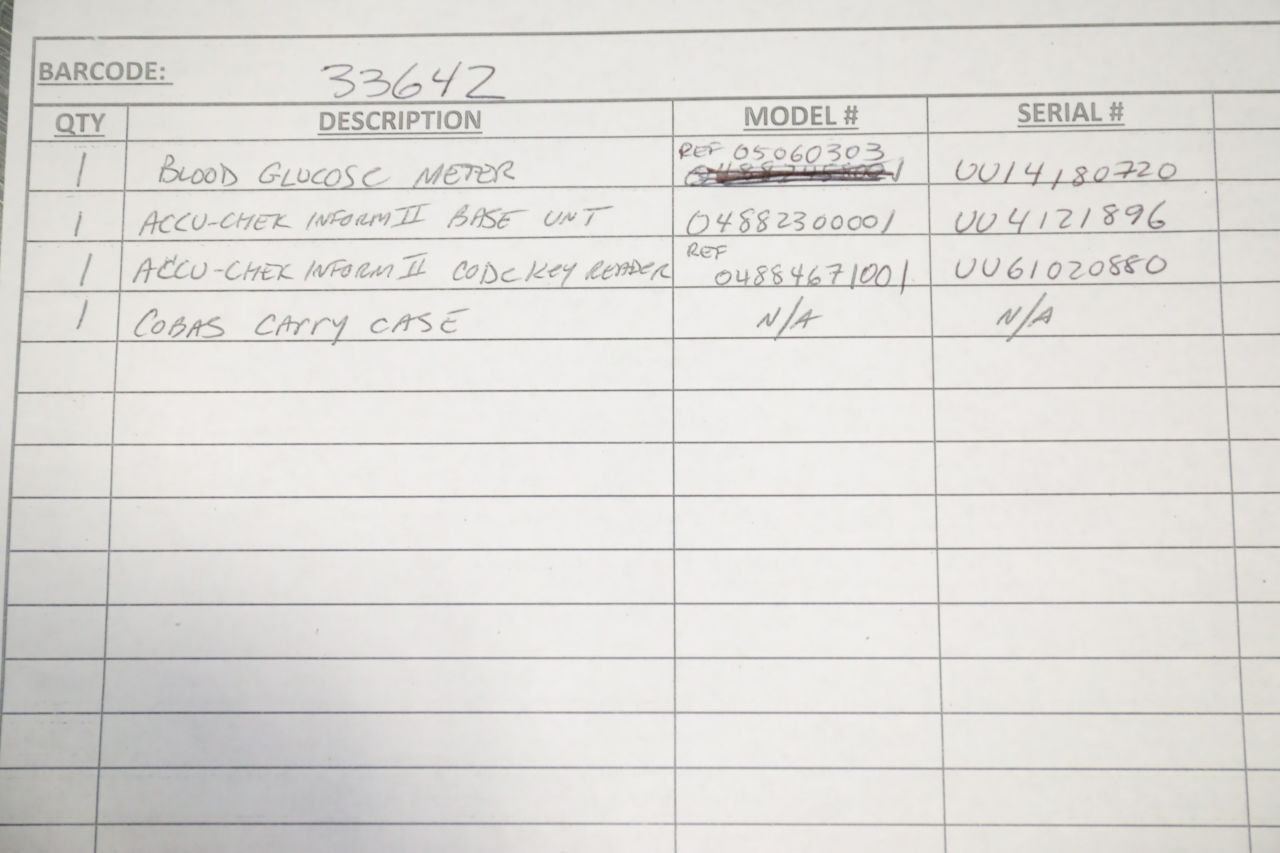 BARCODE: 33642
QTY DESCRIPTION MODEL # SERIAL #
REF 05060303
1 BLOOD GLUCOSE METER UU14180720
1 ACCU-CHEK INFORM II BASE UNT 04882300001 UU4121896
REF
1 ACCU-CHEK INFORM II CODE KEY READER 04884671001 UU61020880
1 COBAS CARRY CASE N/A N/A